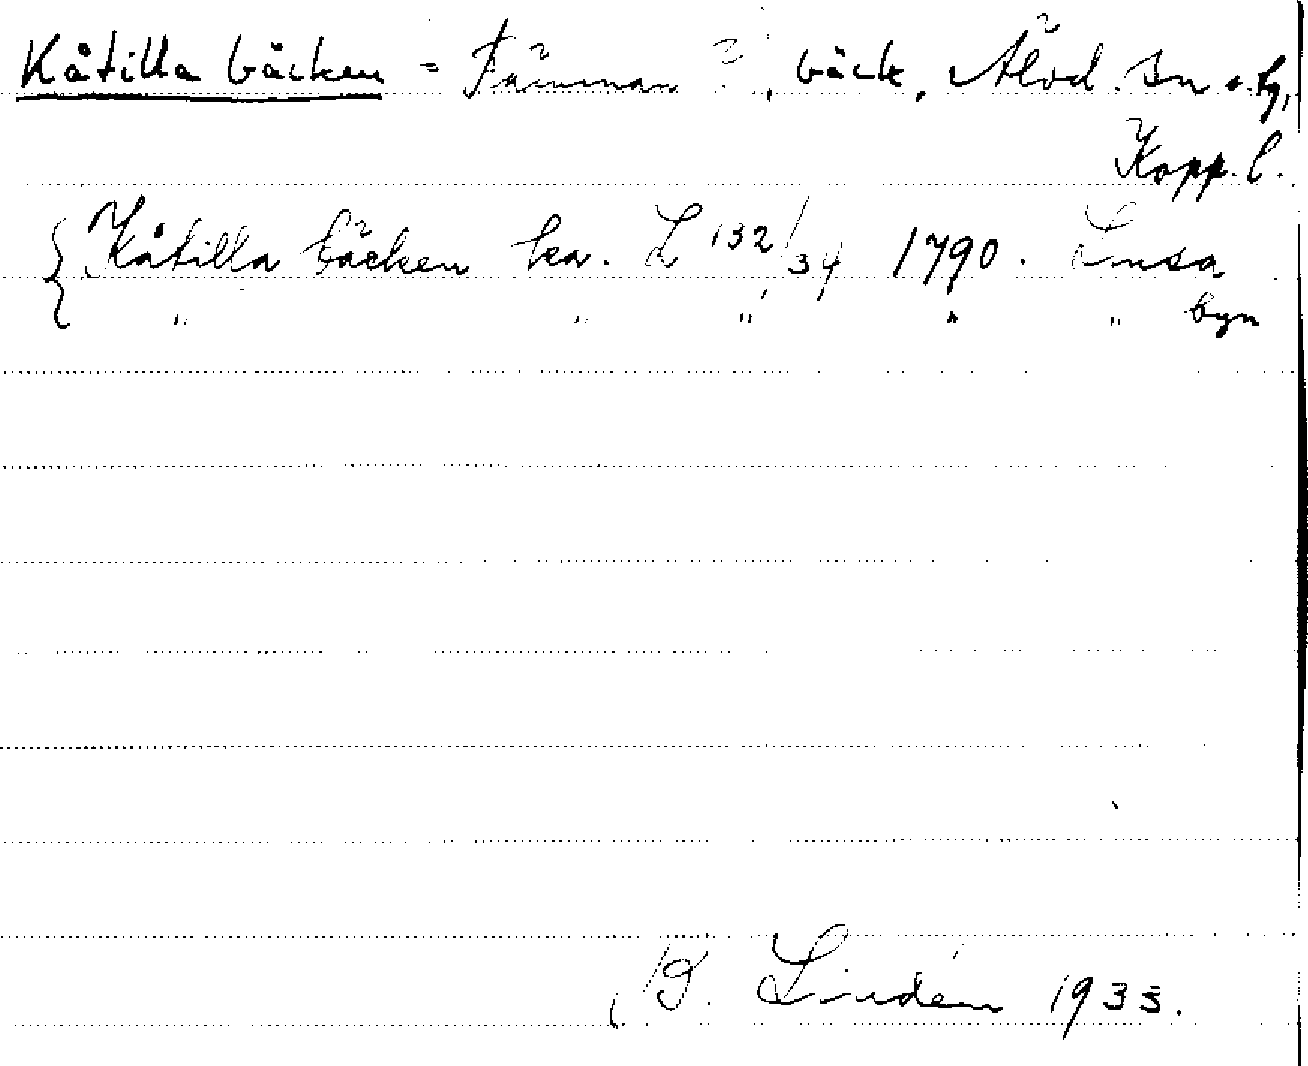 Kåtilla bäcken = Fämman ?, bäck, Älvd. sn o. hd,
Kopp. l.
{ Kåtilla bäcken ka. L 132/34 1790. Lnsa,
" " " " " byn
B. Lindén 1933.